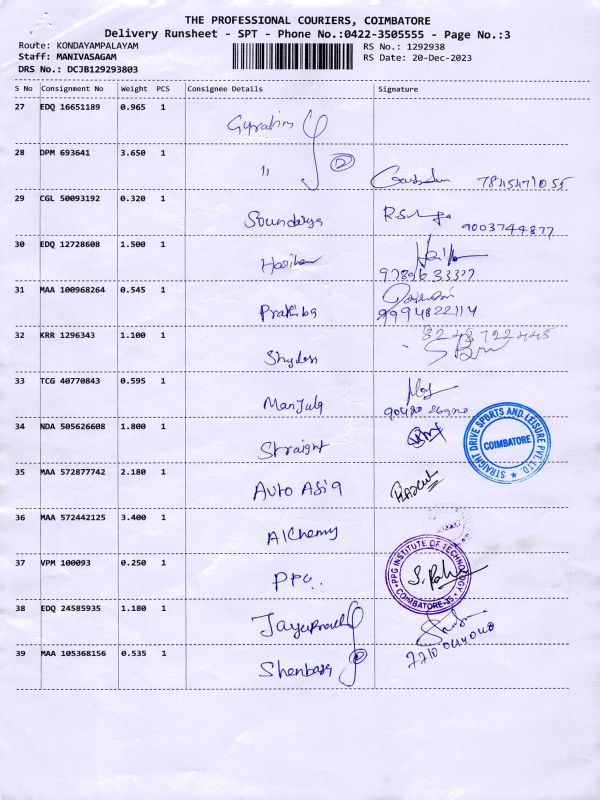 THE PROFESSIONAL COURIERS, COIMBATORE
Delivery Runsheet - SPT - Phone No.:0422-3505555 - Page No.:3
Route: KONDAYAMPALAYAM
RS No.: 1292938
Staff: MANIVASAGAM
RS Date: 20-Dec-2023
DRS No.: DCJB129293803
S No Consignment No Weight PCS Consignee Details Signature
27 EDQ 16651189 0.965 1
28 DPM 693641 3.650 1 11 2
7845471055
29 CGL 50093192 0.320 1 Soundarya
9003744877
30 EDQ 12728608 1.500 1 Hariharan
31 MAA 100968264 0.545 1 Prathiba
9994822114
32 KRR 1296343 1.100 1
33 TCG 40770843 0.595 1 Manjula
34 NDA 505626608 1.800 1 Straight
STRAIGHT DRIVE SPORTS AND LEISURE PVT. LTD.
COIMBATORE
35 MAA 572877742 2.180 1 Auto Asia
36 MAA 572442125 3.400 1 Alchemy
37 VPM 100093 0.250 1 PPG
PPG INSTITUTE OF TECHNOLOGY
COIMBATORE-35
38 EDQ 24585935 1.180 1
39 MAA 105368156 0.535 1 Shenbaga